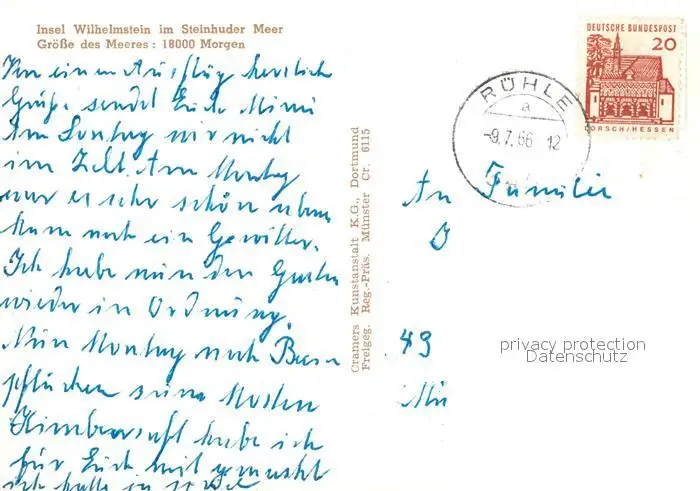 Insel Wilhelmstein im Steinhuder Meer
Größe des Meeres: 18000 Morgen
Von einem Ausflug herzliche
Grüße sendet Euch Mimi
Am Sontag wir nicht
im Zelt. Am Montag
war es sehr schön aber
kam noch ein Gewitter.
Ich habe nun den Garten
wieder in Ordnung
Montag nach
pflücken
Himbeersaft habe ich
für Euch mit gemacht
ich hatte
Cramers Kunstanstalt K.G., Dortmund
Freigeg. Reg.-Präs. Münster Cr. 6115
RÜHLE
a
-9.7.66 12
DEUTSCHE BUNDESPOST
20
LORSCH/HESSEN
An Familie
49
privacy protection
Datenschutz